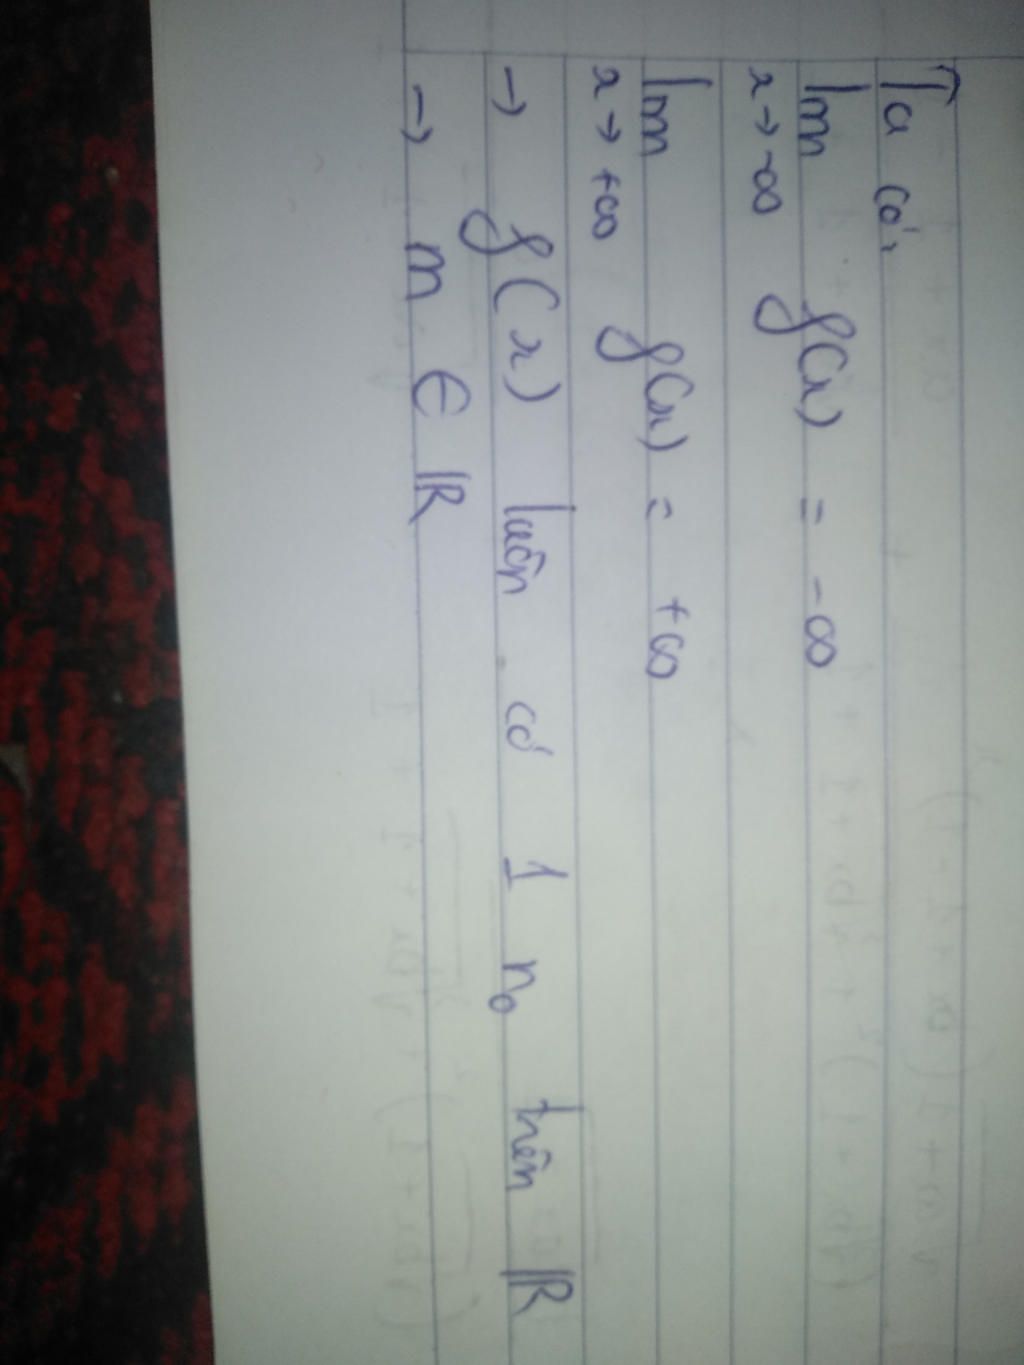 Ta có,
lim f(x) = -∞
x → -∞
lim f(x) = +∞
x → +∞
→ f(x) luôn có 1 n₀ trên ℝ
→ m ∈ ℝ